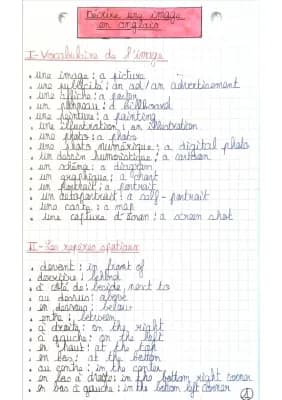 Décrire une image
en anglais
I- Vocabulaire de l'image
• une image : a picture
• une publicité : an ad / an advertisement
• une affiche : a poster
• un panneau : a billboard
• une peinture : a painting
• une illustration : an illustration
• une photo : a photo
• une photo numérique : a digital photo
• un dessin humoristique : a cartoon
• un schéma : a diagram
• un graphique : a chart
• un portrait : a portrait
• un autoportrait : a self-portrait
• une carte : a map
• une capture d'écran : a screen shot
II- Les repères spatiaux
• devant : in front of
• derrière : behind
• à côté de : beside, next to
• au dessus : above
• en dessous : below
• entre : between
• à droite : on the right
• à gauche : on the left
• en haut : at the top
• en bas : at the bottom
• au centre : in the center
• en bas à droite : in the bottom right corner
• en bas à gauche : in the bottom left corner
①